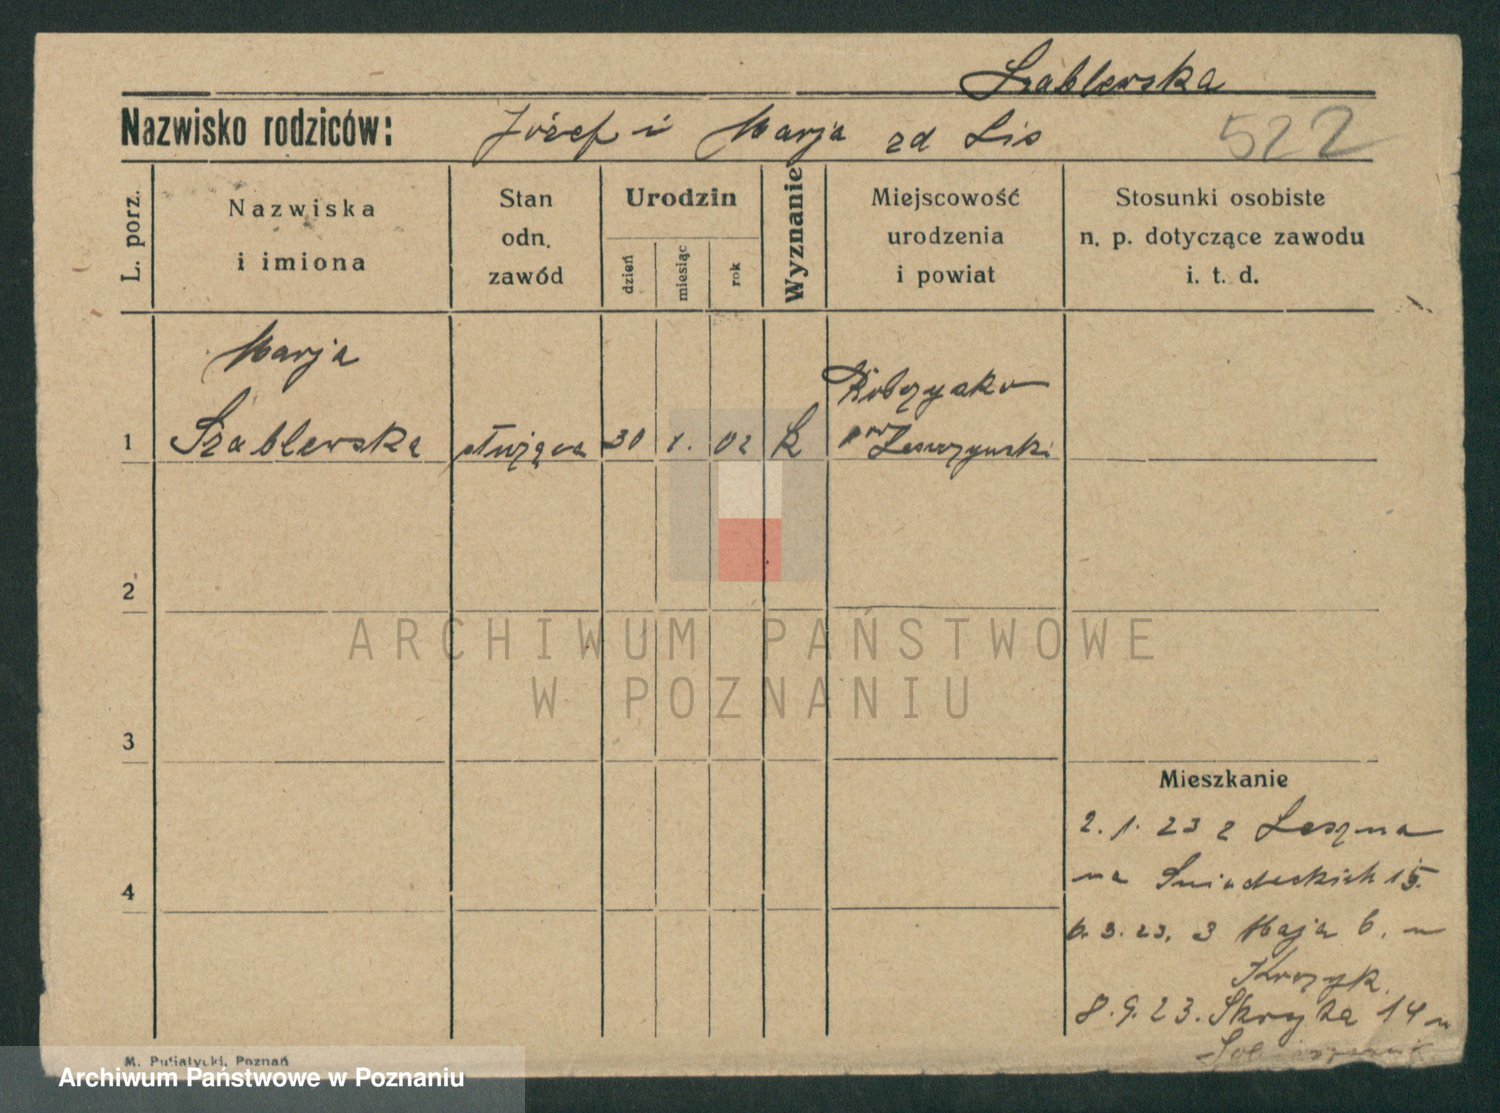 Szablewska
Nazwisko rodziców: Józef i Marja zd Lis
522
L. porz.
Nazwiska
i imiona
Stan
odn.
zawód
Urodzin
dzień
miesiąc
rok
Wyznanie
Miejscowość
urodzenia
i powiat
Stosunki osobiste
n. p. dotyczące zawodu
i. t. d.
Marja
1 Szablewska służąca 30 1. 02 k
pow Leszczyński
2
3
4
ARCHIWUM PAŃSTWOWE
W POZNANIU
Mieszkanie
2.1.23 z Leszna
na Śniadeckich 15.
6.3.23. 3 Maja 6. u
8.9.23. Skryta 14 u
M. Putiatycki, Poznań
Archiwum Państwowe w Poznaniu